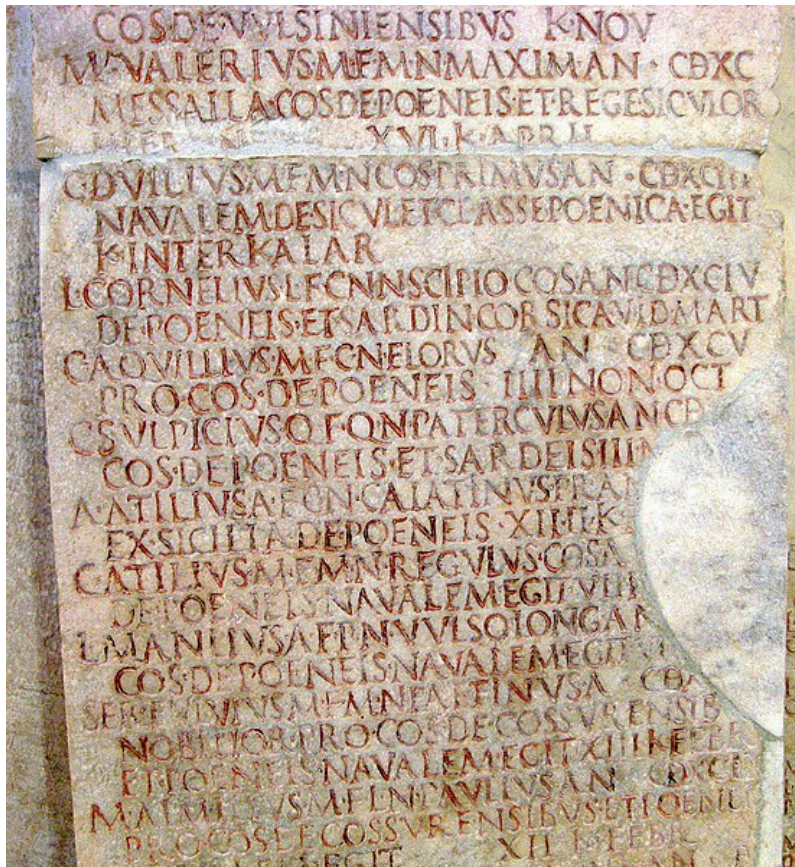 COS·DE·VVLSINIENSIBVS K·NOV
M·VALERIVS·M·F·M·N·MAXIM·AN·CƆXC
MESSALLA·COS·DE·POENEIS·ET·REGE·SICVLOR
XVI·K·APRIL
C·DVILIVS·M·F·M·N·COS·PRIMVS·AN·
NAVALEM·DE·SICVL·ET·CLASSE·POENICA·EGIT
K·INTERKALAR
L·CORNELIVS·L·F·CN·N·SCIPIO·COS·AN·CƆXCIV
DE·POENEIS·ET·SARDIN·CORSICA·V·ID·MART
C·AQVILLIVS·M·F·C·N·FLORVS AN·CƆXCV
PRO·COS·DE·POENEIS·IIII·NON·OCT
C·SVLPICIVS·Q·F·Q·N·PATERCVLVS·AN·CƆ
COS·DE·POENEIS·ET·SARDEIS·III
A·ATILIVS·A·F·C·N·CAIATINVS·PR·AN
EX·SICILIA·DE·POENEIS·XIIII·K
C·ATILIVS·M·F·M·N·REGVLVS·COS·A
DE·POENEIS·NAVALEM·EGIT·VIII
L·MANLIVS·A·F·P·N·VVLSO·LONG·AN
COS·DE·POENEIS·NAVALEM·EGIT·VI
SER·FVLVIVS·M·F·M·N·PAETINVS·A
NOBILIOR·PRO·COS·DE·COSSVRENSIB
ET·POENEIS·NAVALEM·EGIT·XIII·K·FEBR
M·AIMILIVS·M·F·L·N·PAVLLVS·AN
PRO·COS·DE·COSSVRENSIBVS·ET·POENEI
EGIT XII·K·FEBR